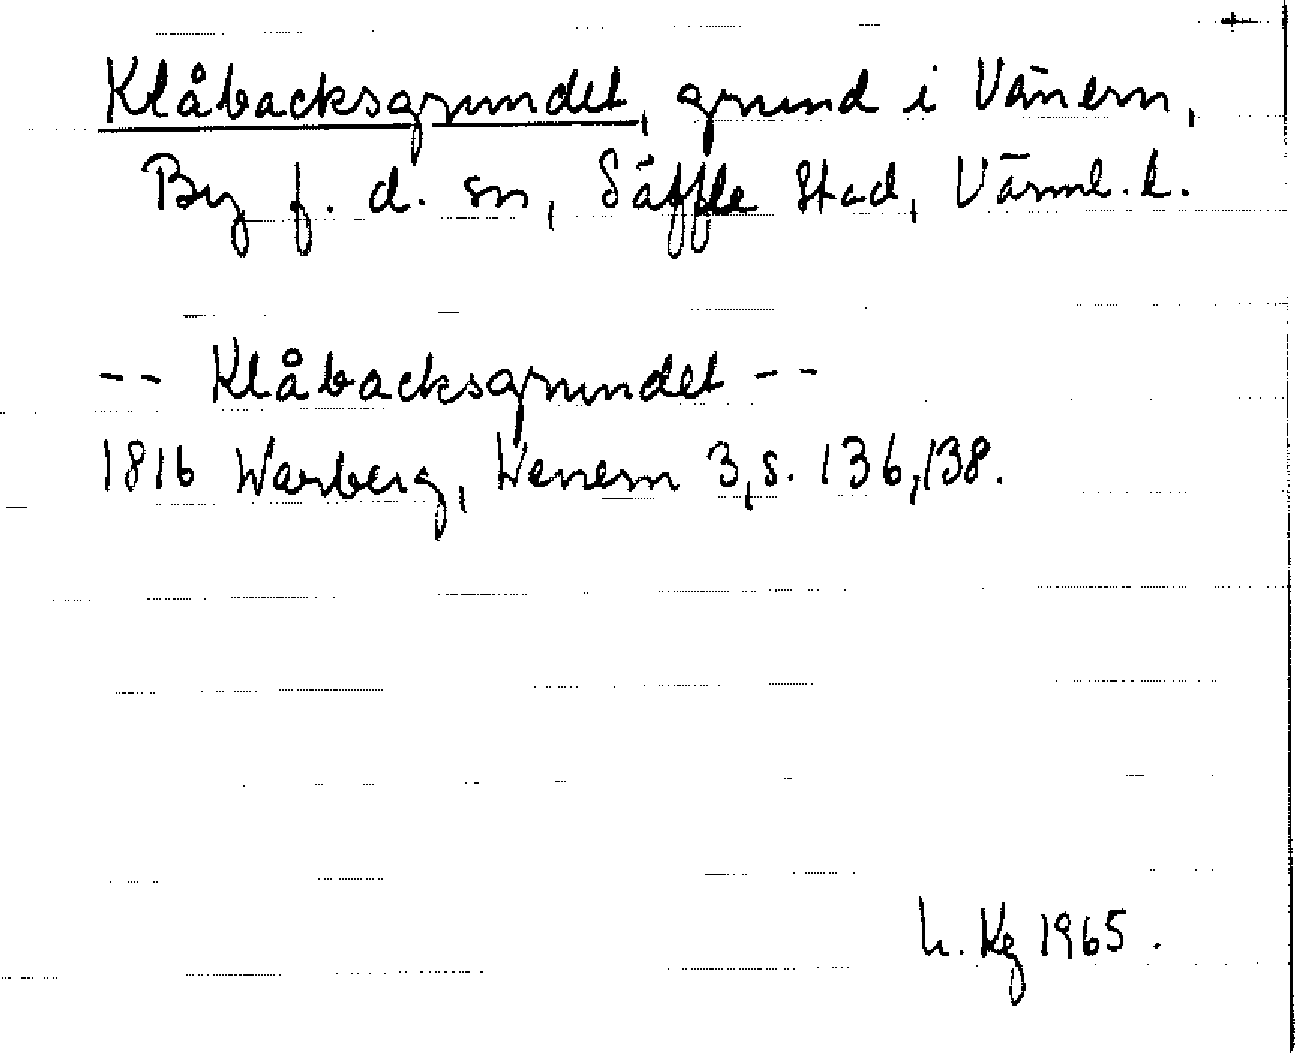 Klåbacksgrundet, grund i Vänern,
By f. d. sn, Säffle stad, Värml. l.
-- Klåbacksgrundet --
1816 Warberg, Wenern 3, s. 136, 138.
h. Kg 1965.